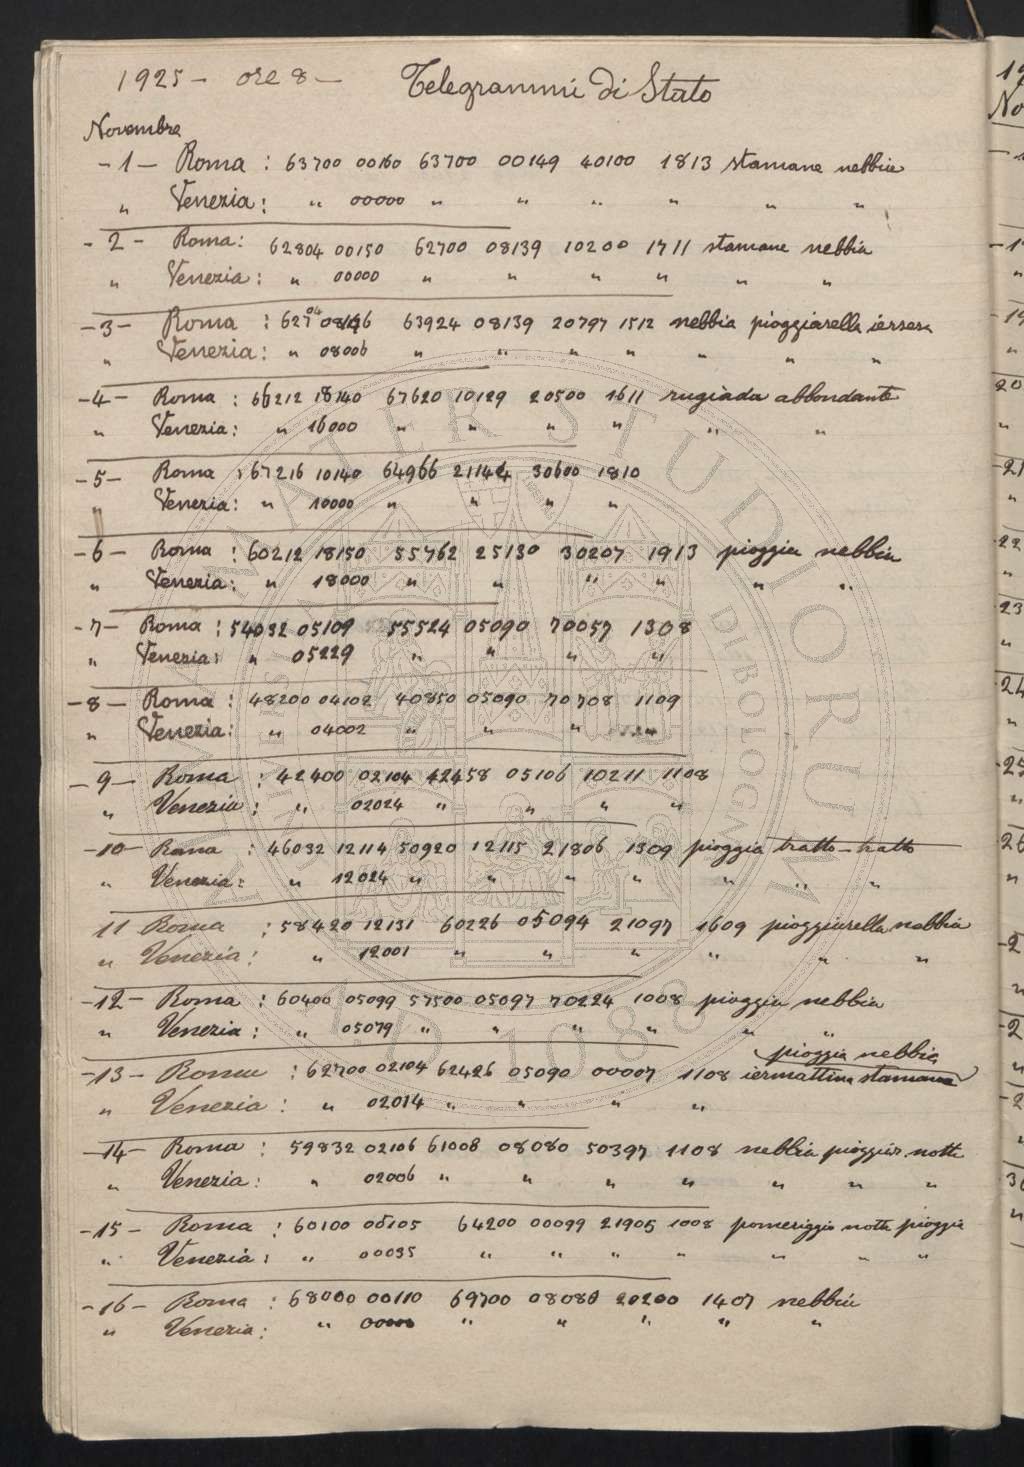 1925 - ore 8 - Telegrammi di Stato
Novembre
- 1 - Roma : 63700 00160 63700 00149 40100 1813 stamane nebbia
" Venezia : " 00000 " " " " " "
- 2 - Roma : 62804 00150 62700 08139 10200 1711 stamane nebbia
" Venezia : " 00000 " " " " " "
- 3 - Roma : 63924 08139 20797 1512 nebbia pioggiarella iersera
" Venezia : " 08006 " " " " " " "
- 4 - Roma : 66212 18140 67620 10129 20500 1611 rugiada abbondante
" Venezia : " 16000 " " " " " "
- 5 - Roma : 67216 10140 64966 21144 30600 1810
" Venezia : " 10000 " " " "
- 6 - Roma : 60212 18150 55762 25130 30207 1913 pioggia nebbia
" Venezia : " 18000 " " " " " "
- 7 - Roma : 54032 05109 55524 05090 70057 1308
" Venezia : " 05229 " " " "
- 8 - Roma : 48200 04102 40850 05090 70708 1109
" Venezia : " 04002 " " "
- 9 - Roma : 42400 02104 42458 05106 10211 1108
" Venezia : " 02024 " " " "
- 10 - Roma : 46032 12114 50920 12115 21806 1309 pioggia tratto - tratto
" Venezia : " 12024 " " " " " " "
11 Roma : 58420 12131 60226 05094 21097 1609 pioggiarella nebbia
" Venezia : " 12001 " " " " " "
- 12 - Roma : 60400 05099 57500 05097 70224 1008 pioggia nebbia
" Venezia : " 05079 " " " " " "
pioggia nebbia
- 13 - Roma : 62700 02104 62426 05090 00007 1108 iermattina stamane
" Venezia : " 02014 " " " "
- 14 - Roma : 59832 02106 61008 08080 50397 1108 nebbia pioggia notte
" Venezia : " 02006 " " " " " " "
- 15 - Roma : 60100 00105 64200 00099 21905 1008 pomeriggio notte pioggia
" Venezia : " 00035 " " " " " " "
- 16 - Roma : 68000 00110 69700 08080 20200 1407 nebbia
" Venezia : " " " " " "
ALMA MATER STUDIORUM
UNIVERSITÀ DI BOLOGNA
A.D. 1088